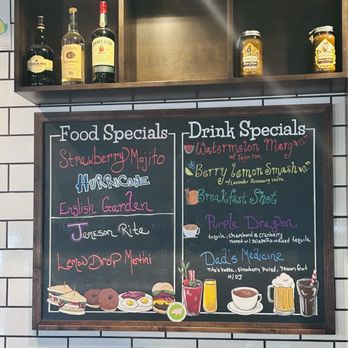 JAMESON
Food Specials
Strawberry Mojito
HURRICANE
English Garden
Jameson Rita
Lemon Drop Martini
Drink Specials
Watermelon Marg
w/ Tajin rim
Berry Lemon Smash
Lavender Rosemary vodka
Breakfast Shot
Purple Dragon
tequila, chambord & cranberry
infused tequila
Dad's Medicine
Tito's Vodka, strawberry pureé, Passion fruit
w/ OJ